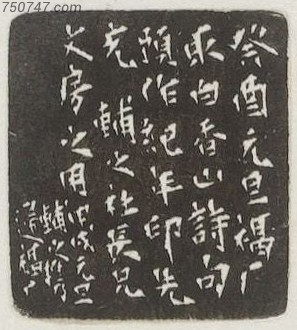 750747.com
癸酉元旦福厂
取白香山詩句
預作紀年印先
充 輔之社長兄
文房之用 甲戌元旦
輔之